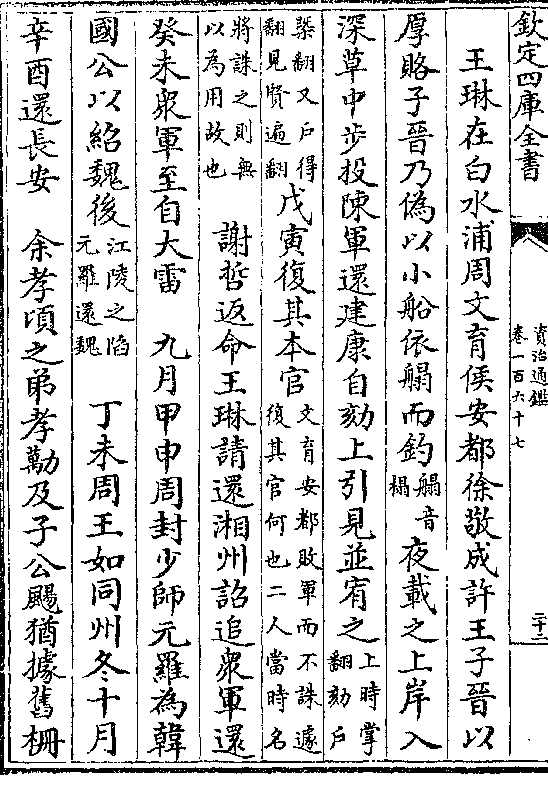 欽定四庫全書
資治通鑑
卷一百六十七
王琳在白水浦周文育侯安都徐敬成許王子晉以
厚賂子晉乃偽以小船依䑽而釣䑽音榻夜載之上岸入
深草中步投陳軍還建康自劾上引見並宥之上時掌翻劾戶
槩翻又戶得翻見賢遍翻戊寅復其本官文育安都敗軍而不誅遽復其官何也二人當時名
將誅之則無以為用故也 謝哲返命王琳請還湘州詔追衆軍還
癸未衆軍至自大雷 九月甲申周封少師元羅為韓
國公以紹魏後江陵之陷元羅還魏 丁未周王如同州冬十月
辛酉還長安 余孝頃之弟孝勱及子公颺猶據舊柵